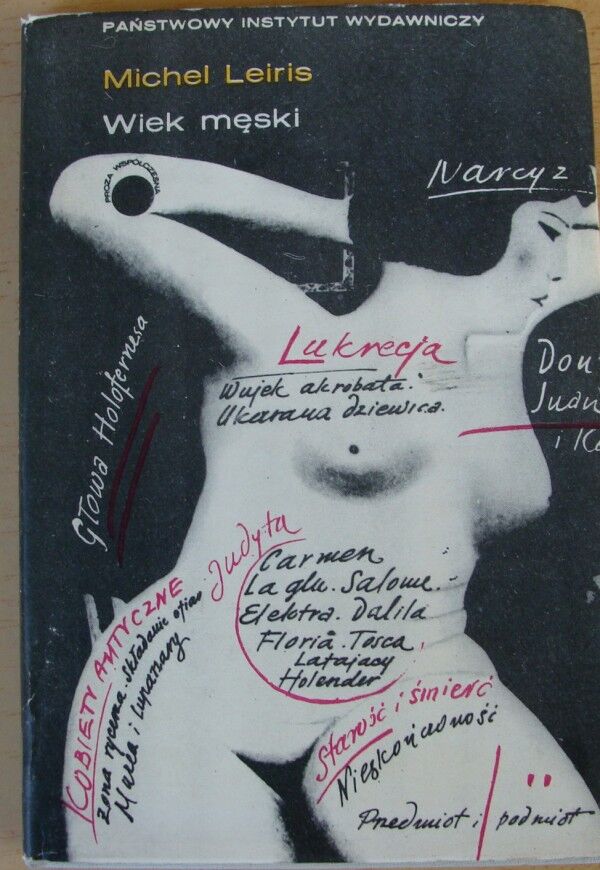 PAŃSTWOWY INSTYTUT WYDAWNICZY
Michel Leiris
Wiek męski
PROZA WSPÓŁCZESNA
Narcyz
Lukrecja
Wujek akrobata.
Ukarana dziewica.
Don
Juan
i K
Głowa Holofernesa
Judyta
Carmen
La glu. Salome.
Elektra. Dalila
Floria. Tosca
Latający
Holender
KOBIETY ANTYCZNE
żona rycerza. składanie ofiar
Muza i lupanary
Starość i śmierć
Nieskończoność
Przedmiot i podmiot